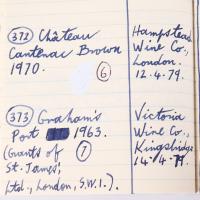 (372) Château
Cantenac Brown
1970.
(6)
Hampstead
Wine Co.,
London.
12.4.79.
(373) Graham's
Port 1963.
(Grants of
St. James;
Ltd., London, S.W.1.).
(7)
Victoria
Wine Co.,
Kingsbridge
14.4.79.